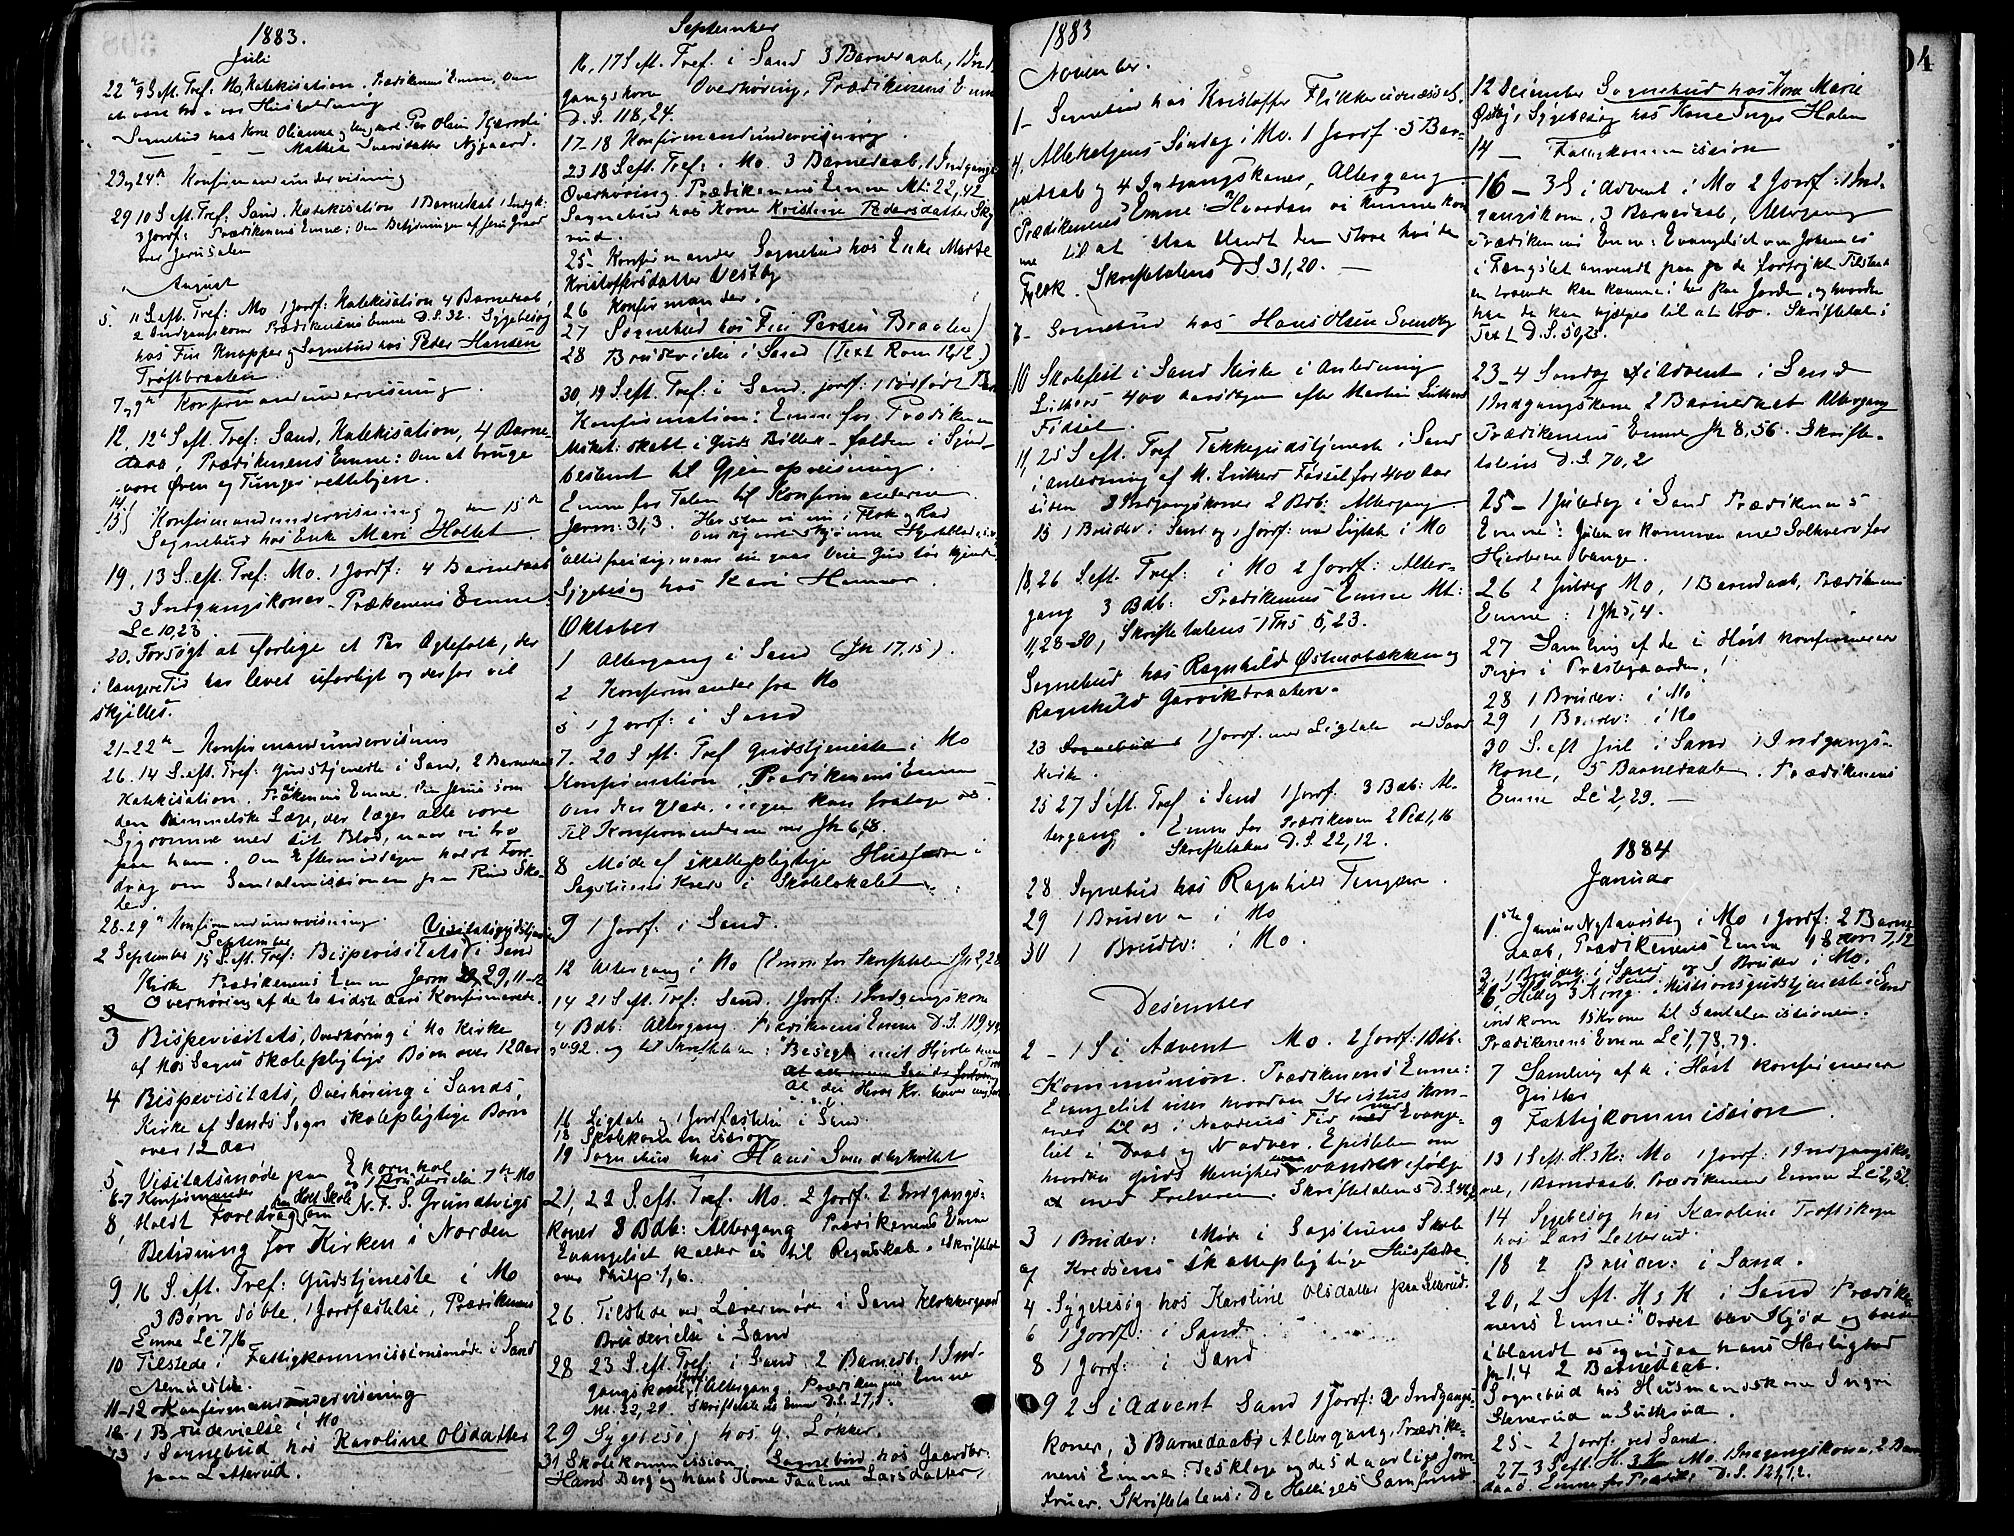 1883.
Juli
22de 9 S. eft. Tref. Mo, Katekisation. Prædikenens Emne: Om
at være tro i vor Husholdning
Sognebud hos Kone Olianne og Per Olsen
Mathea Nygaard.
23 og 24de Konfirmandundervisning
29 10 S. eft. Tref: Sand. Katekisation 1 Barnedaab 1 Indgk:
3 Jordf: Prædikenens Emne: Om Betydningen af Jesu Graad
over Jerusalem
August
5. 11 S. eft. Tref: Mo 1 Jordf: Katekisation 4 Barnedaab,
2 Indgangskoner Prædikenens Emne D. S. 32. Sygebesøg
hos Fin Knapper og Sognebud hos Peder Hansen
Trøftbraaten
7 og 9de Konfirmandundervisning.
12. 12te S. eft. Tref: Sand, Katekisation, 4 Barne-
daab, Prædikenens Emne: Om at bruge
vore Øren og Tunger rettelgen.
14.
15 Konfirmandundervisning og den 15de
Sognebud hos Enke Mari Holtet.
19, 13 S. eft. Tref: Mo. 1 Jordf: 4 Barnedaab
3 Indgangskoner - Prækenens Emne:
Lc 10,23.
20. Forsøgt at forlige et Par Ægtefolk, der
i længere Tid har levet uforligt og derfor vil
skjilles.
21-22de - Konfirmandundervisning
26. 14 S. eft. Tref: Gudstjeneste i Sand, 2 Barnedaab
Katekisation. Prækenens Emne: Om Jesus som
den himmelske Læge, der læger alle vore
Sygdomme med sit Blod, naar vi tro
paa ham. Om Eftermiddagen holdt Fore-
drag om Santalmissionen paa Sko-
le.
28-29de Konfirmandundervisning.
September Visitatsgudstjeneste
2 September 15 S. eft. Tref: Bispevisitats i Sand
Kirke Prædikenens Emne Jerm 29, 11-12
Overhøring af de to sidste Aars Konfirmerede.
3 Bispevisitats, Overhøring i Mo Kirke
af Mos Sogns skolepligtige Børn over 12 Aar
4 Bispevisitats, Overhøring i Sands
Kirke af Sands Sogns skolepligtige Børn
over 12 Aar
5 Visitatsmøde paa Ekornhol
6-7 Konfirmander og 1 Brudevielse 7de Mo
8, Holdt Foredrag paa Skole om N. F. S. Grundtvigs
Betydning for Kirken i Norden
9, 16 S. eft. Tref: Gudstjeneste i Mo
3 Børn døbte, 1 Jordfæstelse, Prædikenens
Emne Lc 7,16
10 Tilstede i Fattigkommissionsmøde i Sand
Almueskole.
11-12 Konfirmandundervisning
12 1 Brudevielse i Mo
13 1 Sognebud hos Karoline Olsdatter
paa Letterud.
September
16, 17 S. eft. Tref. i Sand 3 Barnedaab, 1 Ind-
gangskone Overhøring, Prædikenens Emne
D. S. 118, 24.
17-18 Konfirmandundervisning.
23 18 S. eft. Tref: i Mo 3 Barnedaab, 1 Indgangs
Overhøring Prædikenens Emne Mt: 22, 42
Sognebud hos Kone Kristine Pedersdatter Sky
rud.
25 Konfirmander Sognebud hos Enke Marte
Kristoffersdatter Vestby
26 Konfirmander.
27 Sognebud hos Fin Persen Braaten
28 Brudevielse i Sand (Text Rom 12,12)
30, 19 S. eft. Tref: i Sand jordf: 1 Dødfødt Barn
Konfirmation: Emne for Prædiken
Msket: skabt i Guds Billede - falden i Synd
bestemt til Gjenopreisning.
Emne for Talen til Konfirmanderne
Jerm. 31,3. Her staa vi nu i Flok og Rad
Om skjønne Hjerteblad
Sygebesøg hos Kari Hemner.
Oktober
1 Altergang i Sand (Jh 17, 15).
2 Konfirmander fra Mo
5 1 Jordf: i Sand
7. 20 S. eft. Tref Gudstjeneste i Mo
Konfirmation, Prædikenens Emne
Om den Glæde, ingen kan fratage os.
Til Konfirmanderne over Jh 6, 68.
8 Møde af skattepligtige Husfædre i
Sagstuens Kreds i Skolelokalet
9 1 Jordf: i Sand.
12 Altergang i Mo (Emne for Skriftetalen 1 Jh 2, 28
14 21 S. eft. Tref: Sand. 1 Jordf: 1 Indgangskone
4 Bdb: Altergang Prædikenens Emne D. S. 119, 49
92. og til Skriftetalen: "Besegl mit Hjerte
At den Herre Kr. haver
16 Ligtale og 1 Jordfæstelse i Sand
18 Skolekommission
19 Sognebud hos Hans Svendbykvillet
21, 22 S. eft. Tref. Mo. 2 Jordf: 2 Indgangs-
koner 8 Bdb: Altergang Prædikenens Emne
Evangeliet kalder os til Regnskab. Skriftetale
over Philp 1, 6.
26. Tilstede ved Lærermøde i Sand Klokkergaard
Brudevielse i Sand
28 23 S. eft. Tref: i Sand 2 Barnedb, 1 Ind-
gangskone, Altergang. Prædikenens Emne
Mt. 22, 21. Skriftetalens Emne D. S. 27, 8.
29 Sygebesøg hos G. Løkker.
31 Skolekommission. Sognebud hos Gaardbr.
Hans Berg og hans Kone Pauline Larsdatter
1883
November.
1- Sognebud hos Kristoffer Flikkeidnæsset.
4. Allehelgens Søndag i Mo. 1 Jordf. 5 Bar-
nedaab og 4 Indgangskoner, Altergang
Prædikenens Emne: Hvordan vi kunne kom
me til at staa blandt den store hvide
Flok. Skriftetalens D. S. 31, 20. -
7- Sognebud hos Hans Olsen Svendby
10 Skolefest i Sand Kirke i Anledning
Luthers 400 aarsdagen efter Martin Luthers
Fødsel.
11, 25 S. eft. Tref Takkegudstjeneste i Sand
i Anledning af M. Luthers Fødsel for 400 Aar
siden 2 Indgangskoner 2 Bdb: Altergang
15 1 Brudev: i Sand og 1 Jordf: med Ligtale i Mo
18, 26 S. eft. Tref: i Mo 2 Jordf: Alter-
gang 3 Bdb: Prædikenens Emne Mt:
11, 28-30, Skriftetalens 1 Ths 5, 23.
Sognebud hos Ragnhild Østmobakken og
Ragnhild Garvikbraaten.
23 Sognebud 1 Jordf. med Ligtale ved Sand
Kirke.
25 27 S. eft. Tref i Sand 1 Jordf. 3 Bdb: Al-
tergang. Emne for Prædikenen 2 Petr 1, 16
Skriftetalens D. S. 22, 12.
28 Sognebud hos Ragnhild Tangen.
29 1 Brudev i Mo
30 1 Brudev: i Mo.
Desember
2 - 1 S i Advent Mo. 2 Jordf: 1 Bdb.
Kommunion. Prædikenens Emne:
Evangeliet viser hvordan Kristus kom-
mer til os i Naadens Tid med Evange-
liet i Daab og Nadver. Epistelen om
hvordan Guds Menighed vandre i følge
med Frelseren. Skriftetalens D. S. 46,
3 1 Brudev: Møde i Sagstuens Skole
af Kredsens skattepligtige Husfædre
4. Sygebesøg hos Karoline Olsdatter paa Letterud.
6 1 Jordf: i Sand
8 1 Jordf: i Sand
9 2 S i Advent Sand 1 Jordf: 2 Indgangs-
koner, 3 Barnedaab, Altergang, Prædike-
nens Emne: De kloge og de 5 daarlige Jom
fruer. Skriftetalens: De Helliges Samfund.
12 Desember Sognebud hos Kone Marie
Østby, Sygebesøg hos Kone Inger Holen
14 - Fattigkommission
16 - 3 S i Advent i Mo 2 Jordf: 1 Ind-
gangskone, 3 Barnedaab, Altergang
Prædikenens Emne: Evangeliet om Johannes
i Fængslet anvendt paa de fortrykte Tilstande
en troende kan komme i her paa Jorden, og hvordan
han da kan hjælpes til at tro. Skriftetalens
Text D. S. 50, 23.
23-4 Søndag i Advent i Sand
1 Indgangskone 2 Barnedaab Altergang
Prædikenens Emne Jh 8, 56. Skrifte-
talens D. S. 70, 2
25 - 1 Juledag i Sand Prædikenens
Emne: Julen er kommen med Solhverv for
Hjerterne bange.
26 2 Juledag Mo, 1 Barnedaab, Prædikenens
Emne: 1 Jh 5, 4.
27 Samling af de i Høst konfirmerede
Piger i Præstegaarden.
28 1 Brudev: i Mo
29 1 Brudev: i Mo
30 S. eft Jul i Sand 1 Indgangs-
kone, 5 Barnedaab. Prædikenens
Emne Lc 2, 29. -
1884
Januar
1ste Januar Nytaarsdag i Mo 1 Jordf: 2 Barne-
daab, Prædikenens Emne 1 Sam 7, 12
3, 1 Brudev. i Sand og 1 Brudev i Mo.
6 Hellig 3 Kong: Missionsgudstjeneste i Sand
indkom 13 Kroner til Santalmissionen.
Prædikenens Emne Lc 1, 78, 79.
7 Samling af de i Høst konfirmerede
Gutter
9 Fattigkommission.
13 1 S eft. H3K: Mo 1 Jordf: 1 Indgangsko-
ne, 1 Barnedaab. Prædikenens Emne Lc 2, 52.
14 Sygebesøg hos Karoline Trøftskogen
hos Lars Letterud.
18 2 Brudev: i Sand.
20, 2 S eft. H3K i Sand Prædike-
nens Emne: Ordet blev Kjød og boede
iblandt os og vi saa hans Herlighed
Jh 1, 4 2 Barnedaab.
Sognebud hos Husmandskone Ingri
Stenerud u Sutterud.
25 - 2 Jordf: ved Sand
27-3 S eft. H. 3 K. Mo. 1 Indgangskone, 2 Barne
daab. Emne for Prædik: D. S. 121, 1, 2.